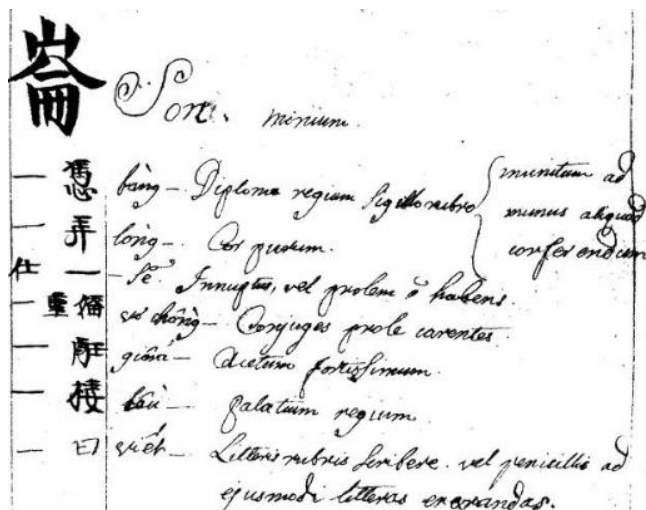 崙 Son. minium.
— 憑 bàng — Diploma regium sigillo rubro munitum ad
munus aliquod
conferendum
— 弄 lòng — Cor purum.
仕 — — sẽ. Innuptus, vel prolem õ habens
— vợ chồng — Conjuges prole carentes.
— giấm — Acetum fortissimum.
— 接 lâu — palatium regium
— 曰 viết — Litteris rubris scribere. vel penicillis ad
ejusmodi litteras exarandas.